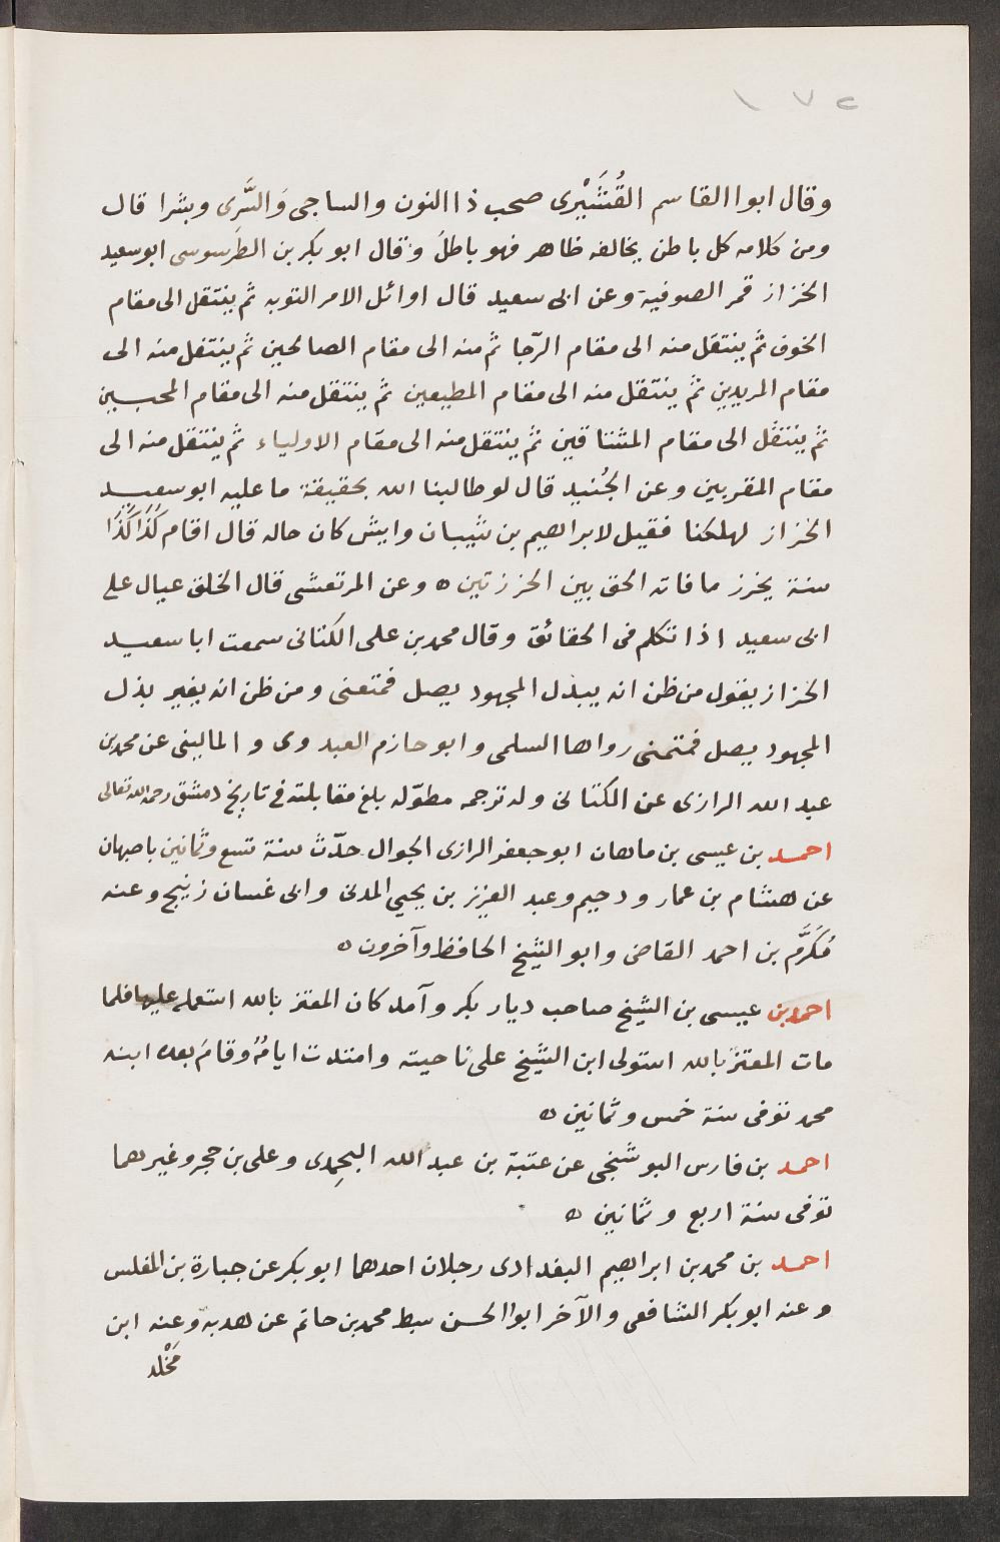 ١٧٢
وقال ابوا القاسم القُشَيْرِى صحب ذا النون والساجى وَالسَّرى وبشرا قال
ومن كلامه كل باطن يخالفه ظاهر فهو باطل وقال ابو بكر بن الطرسوسى ابو سعيد
الخزاز قمر الصوفية وعن ابى سعيد قال اوائل الامر التوبه ثم ينتقل الى مقام
الخوف ثم ينتقل منه الى مقام الرّجا ثم منه الى مقام الصالحين ثم ينتقل منه الى
مقام المريدين ثم ينتقل منه الى مقام المطيعين ثم ينتقل منه الى مقام المحبين
ثم ينتقل الى مقام المشتاقين ثم ينتقل منه الى مقام الاولياء ثم ينتقل منه الى
مقام المقربين وعن الجُنيد قال لو طالبنا الله بحقيقة ما عليه ابو سعيد
الخزاز لهلكنا فقيل لابراهيم بن شيبان وايش كان حاله قال اقام كَذَا كَذَا
سنة يخرز ما فاته الحق بين الخرزتين ه وعن المرتعشى قال الخلق عيال على
ابى سعيد اذا تكلم فى الحقائق وقال محمد بن على الكتانى سمعت ابا سعيد
الخزاز يقول من ظن انه يبذل المجهود يصل فمتعنى ومن ظن انه بغير بذل
المجهود يصل فمتمنى رواها السلمى وابو حازم العبدوى والمالينى عن محمد بن
عبد الله الرازى عن الكتانى وله ترجمه مطوّله بلغ مقابلته فى تاريخ دمشق رحمه الله تعالى
احمد بن عيسى بن ماهان ابو جعفر الرازى الجوال حدّث سنة تسع وثمانين باصبهان
عن هشام بن عمار ودحيم وعبد العزيز بن يحيى المدنى وابى غسان زنيج وعنه
مُكَرَّم بن احمد القاضى وابو الشيخ الحافظ وآخرون ه
احمد بن عيسى بن الشيخ صاحب ديار بكر وآمد كان المعتز بالله استعمله عليها فلما
مات المعتز بالله استولى ابن الشيخ على ناحيته وامتدت ايامُه وقامَ بعده ابنه
محمد توفى سنة خمس وثمانين ه
احمد بن فارس البوشنجى عن عتبة بن عبد الله اليحمِدى وعلى بن حجر وغيرهما
توفى سنة اربع وثمانين ه
احمد بن محمد بن ابراهيم البغدادى رجلان احدهما ابو بكر عن جبارة بن المغلس
وعنه ابو بكر الشافعى والآخر ابوا الحسن سبط محمد بن حاتم عن هدبة وعنه ابن
مَخْلد